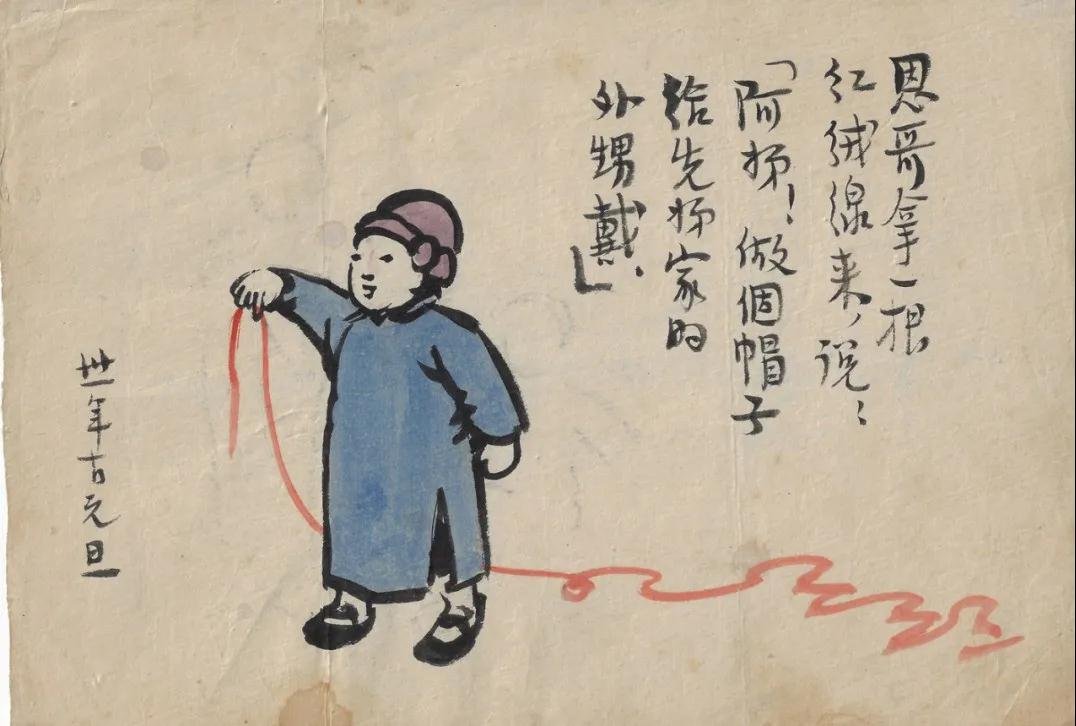 恩哥拿一根
红绒線来，说：
「阿姊！做個帽子
给先姊家的
外甥戴。」
卅一年古元旦